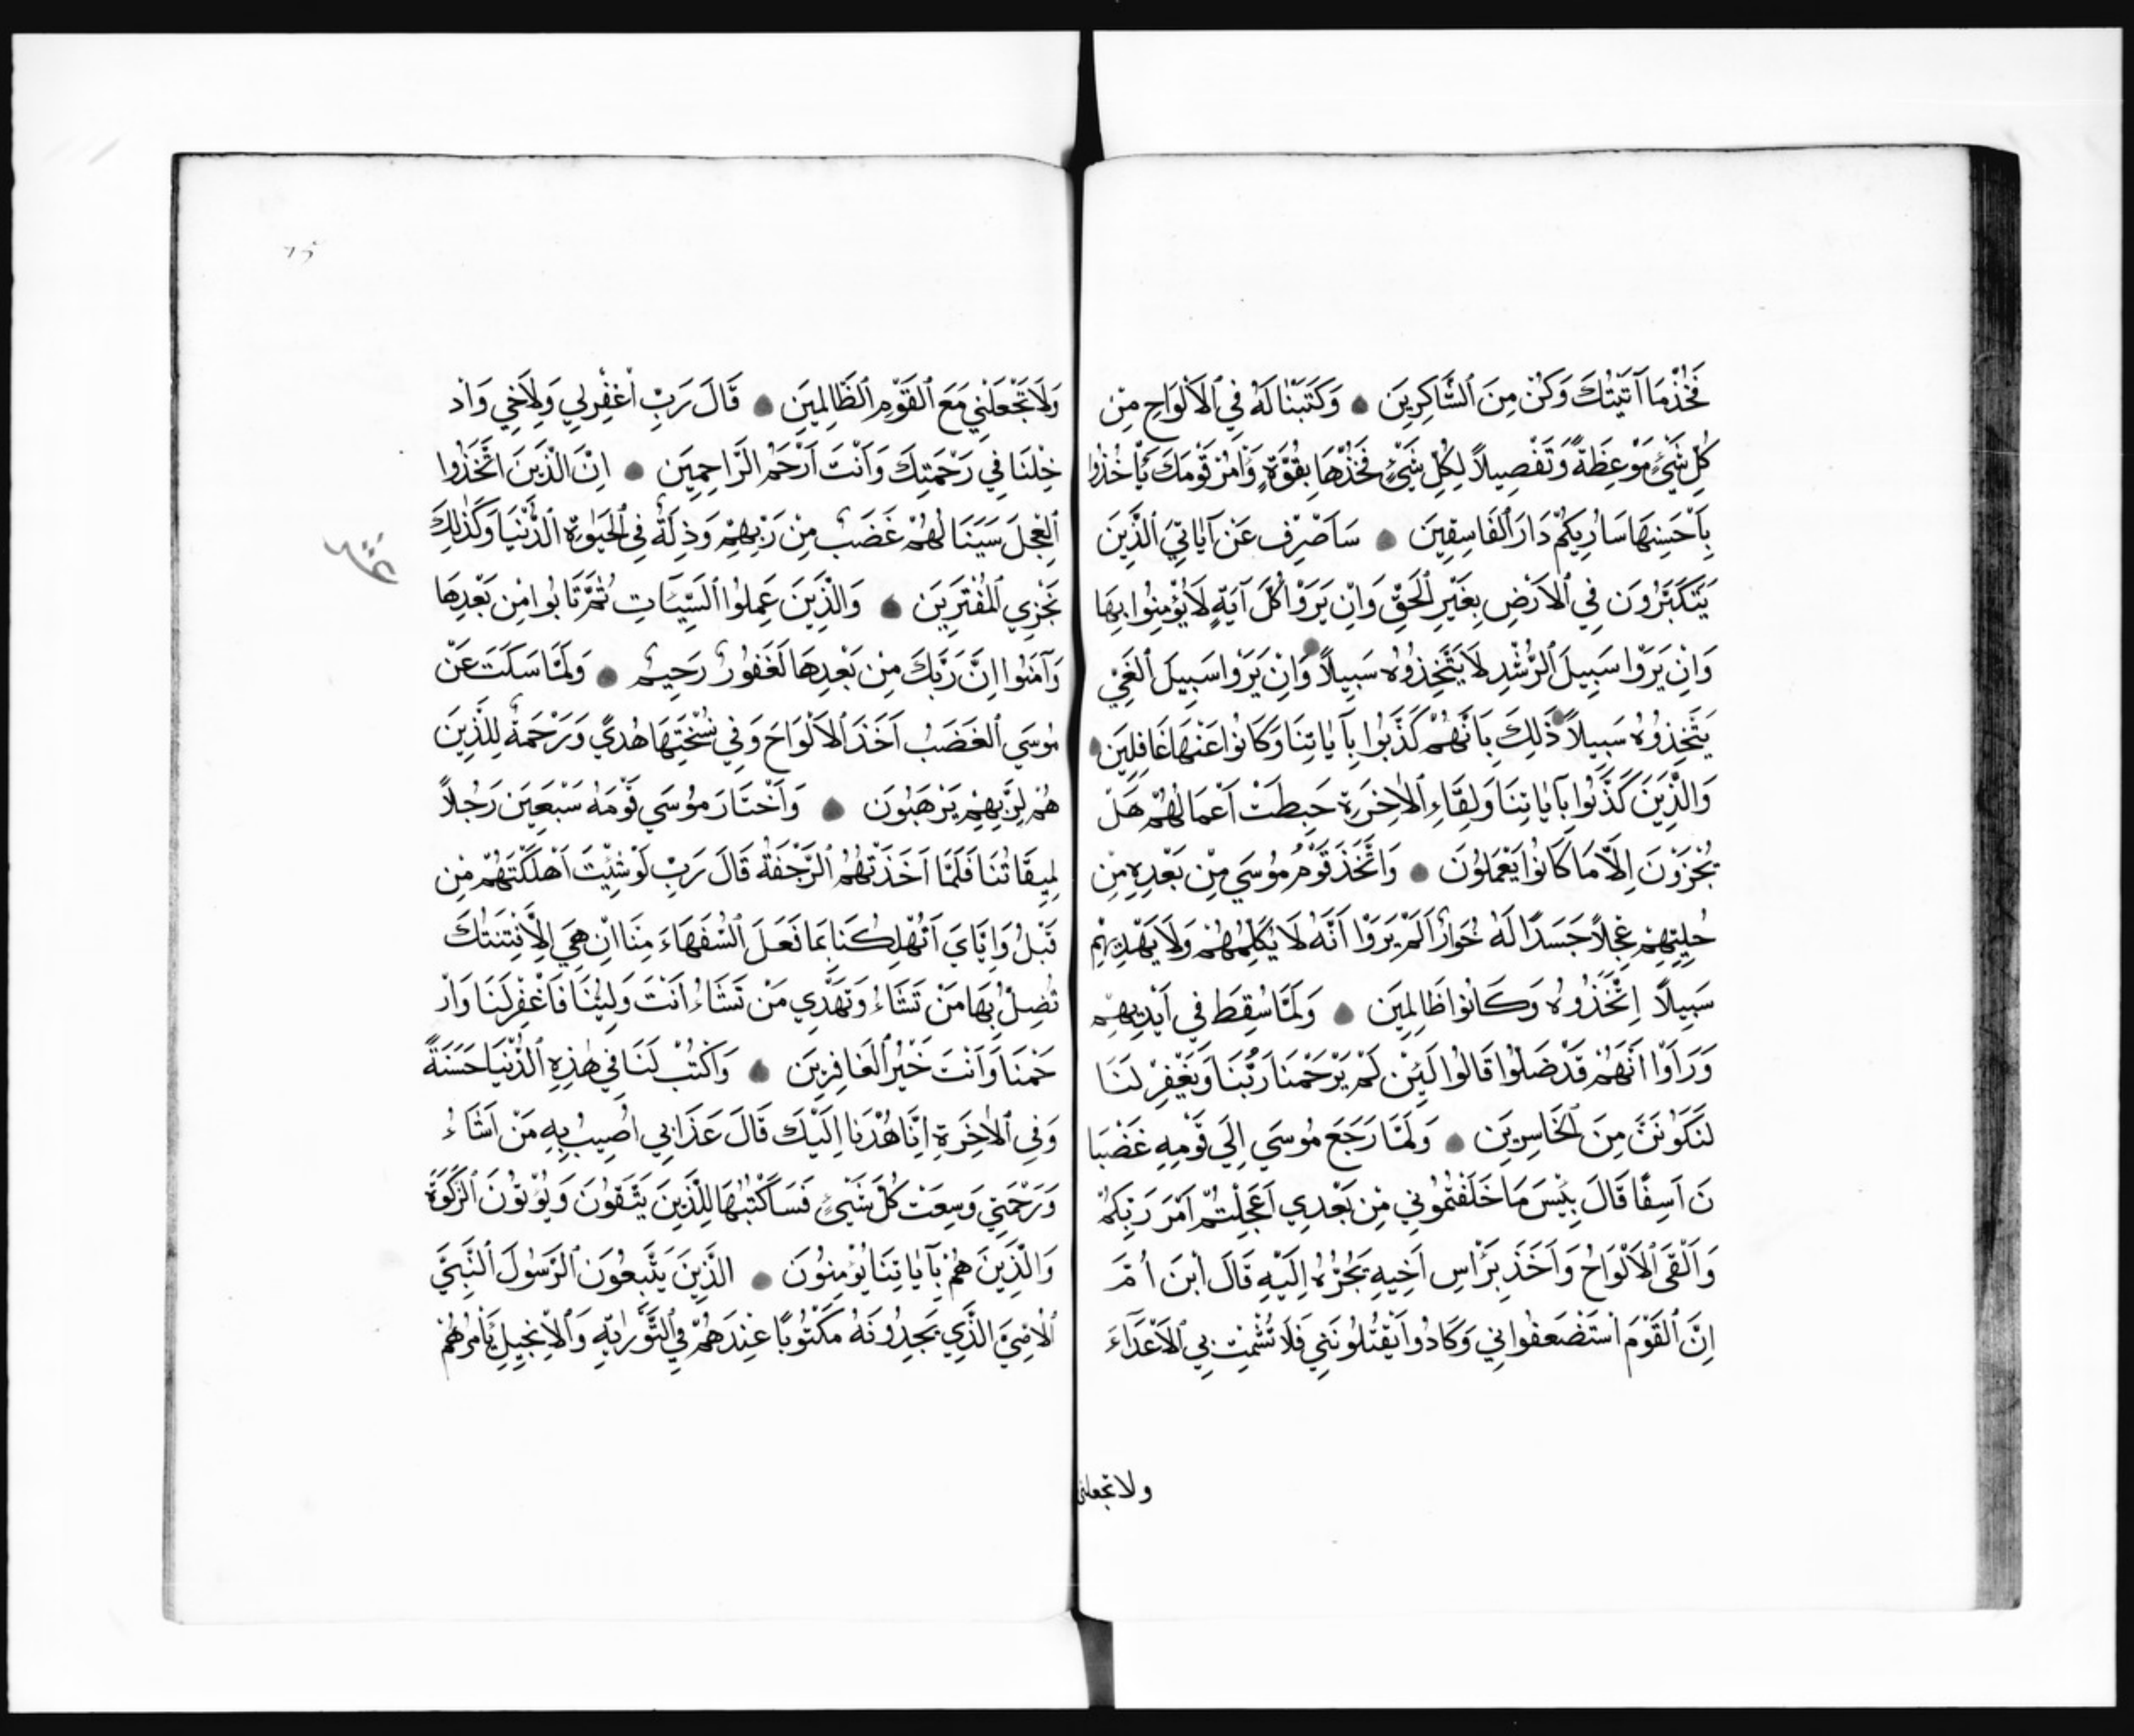 فَخُذْ مَا آتَيْتُكَ وَكُنْ مِنَ ٱلشَّاكِرِينَ وَكَتَبْنَا لَهُ فِي ٱلْاَلْوَاحِ مِنْ
كُلِّ شَيْءٍ مَوْعِظَةً وَتَفْصِيلاً لِكُلِّ شَيْءٍ فَخُذْهَا بِقُوَّةٍ وَأْمُرْ قَوْمَكَ يَأْخُذُوا
بِاَحْسَنِهَا سَاُرِيكُمْ دَارَ ٱلْفَاسِقِينَ سَاَصْرِفُ عَنْ آيَاتِيَ ٱلَّذِينَ
يَتَكَبَّرُونَ فِي ٱلْاَرْضِ بِغَيْرِ ٱلْحَقِّ وَاِنْ يَرَوْا كُلَّ آيَةٍ لَا يُؤْمِنُوا بِهَا
وَاِنْ يَرَوْا سَبِيلَ ٱلرُّشْدِ لَا يَتَّخِذُوهُ سَبِيلاً وَاِنْ يَرَوْا سَبِيلَ ٱلْغَيِّ
يَتَّخِذُوهُ سَبِيلاً ذَلِكَ بِاَنَّهُمْ كَذَّبُوا بِآيَاتِنَا وَكَانُوا عَنْهَا غَافِلِينَ
وَالَّذِينَ كَذَّبُوا بِآيَاتِنَا وَلِقَاءِ ٱلْاٰخِرَةِ حَبِطَتْ اَعْمَالُهُمْ هَلْ
يُجْزَوْنَ اِلَّا مَا كَانُوا يَعْمَلُونَ وَاتَّخَذَ قَوْمُ مُوسَي مِنْ بَعْدِهِ مِنْ
حُلِيِّهِمْ عِجْلاً جَسَدًا لَهُ خُوَارٌ اَلَمْ يَرَوْا اَنَّهُ لَا يُكَلِّمُهُمْ وَلَا يَهْدِيهِمْ
سَبِيلاً اِتَّخَذُوهُ وَكَانُوا ظَالِمِينَ وَلَمَّا سُقِطَ فِي اَيْدِيهِمْ
وَرَاَوْا اَنَّهُمْ قَدْ ضَلُّوا قَالُوا لَئِنْ لَمْ يَرْحَمْنَا رَبُّنَا وَيَغْفِرْ لَنَا
لَنَكُونَنَّ مِنَ ٱلْخَاسِرِينَ وَلَمَّا رَجَعَ مُوسَي اِلَي قَوْمِهِ غَضْبَا
نَ اَسِفًا قَالَ بِئْسَ مَا خَلَفْتُمُونِي مِنْ بَعْدِي اَعَجِلْتُمْ اَمْرَ رَبِّكُمْ
وَاَلْقَى ٱلْاَلْوَاحَ وَاَخَذَ بِرَأْسِ اَخِيهِ يَجُرُّهُ اِلَيْهِ قَالَ ٱبْنَ اُمَّ
اِنَّ ٱلْقَوْمَ ٱسْتَضْعَفُوانِي وَكَادُوا يَقْتُلُونَنِي فَلَا تُشْمِتْ بِي ٱلْاَعْدَاءَ
ولا تجعلني
٦٥
وَلَا تَجْعَلْنِي مَعَ ٱلْقَوْمِ ٱلظَّالِمِينَ قَالَ رَبِّ ٱغْفِرْ لِي وَلِاَخِي وَاَدْ
خِلْنَا فِي رَحْمَتِكَ وَاَنْتَ اَرْحَمُ ٱلرَّاحِمِينَ اِنَّ الَّذِينَ اتَّخَذُوا
ٱلْعِجْلَ سَيَنَالُهُمْ غَضَبٌ مِنْ رَبِّهِمْ وَذِلَّةٌ فِي ٱلْحَيٰوةِ ٱلدُّنْيَا وَكَذٰلِكَ
نَجْزِي ٱلْمُفْتَرِينَ وَالَّذِينَ عَمِلُوا ٱلسَّيِّئَاتِ ثُمَّ تَابُوا مِنْ بَعْدِهَا
وَآمَنُوا اِنَّ رَبَّكَ مِنْ بَعْدِهَا لَغَفُورٌ رَحِيمٌ وَلَمَّا سَكَتَ عَنْ
مُوسَي ٱلْغَضَبُ اَخَذَ ٱلْاَلْوَاحَ وَفِي نُسْخَتِهَا هُدًي وَرَحْمَةٌ لِلَّذِينَ
هُمْ لِرَبِّهِمْ يَرْهَبُونَ وَاَخْتَارَ مُوسَي قَوْمَهُ سَبْعِينَ رَجُلاً
لِمِيقَاتِنَا فَلَمَّا اَخَذَتْهُمُ ٱلرَّجْفَةُ قَالَ رَبِّ لَوْ شِئْتَ اَهْلَكْتَهُمْ مِنْ
قَبْلُ وَاِيَّايَ اَتُهْلِكُنَا بِمَا فَعَلَ ٱلسُّفَهَاءُ مِنَّا اِنْ هِيَ اِلَّا فِتْنَتُكَ
تُضِلُّ بِهَا مَنْ تَشَاءُ وَتَهْدِي مَنْ تَشَاءُ اَنْتَ وَلِيُّنَا فَاَغْفِرْ لَنَا وَاَرْ
حَمْنَا وَاَنْتَ خَيْرُ ٱلْغَافِرِينَ وَاَكْتُبْ لَنَا فِي هٰذِهِ ٱلدُّنْيَا حَسَنَةً
وَفِي ٱلْاٰخِرَةِ اِنَّا هُدْنَا اِلَيْكَ قَالَ عَذَابِي اُصِيبُ بِهِ مَنْ اَشَاءُ
وَرَحْمَتِي وَسِعَتْ كُلَّ شَيْءٍ فَسَاَكْتُبُهَا لِلَّذِينَ يَتَّقُونَ وَيُؤْتُونَ ٱلزَّكٰوةَ
وَالَّذِينَ هُمْ بِآيَاتِنَا يُؤْمِنُونَ الَّذِينَ يَتَّبِعُونَ ٱلرَّسُولَ ٱلنَّبِيَّ
ٱلْاُمِّيَّ الَّذِي يَجِدُونَهُ مَكْتُوبًا عِنْدَهُمْ فِي ٱلتَّوْرٰيةِ وَٱلْاِنْجِيلِ يَأْمُرُهُمْ
عشر